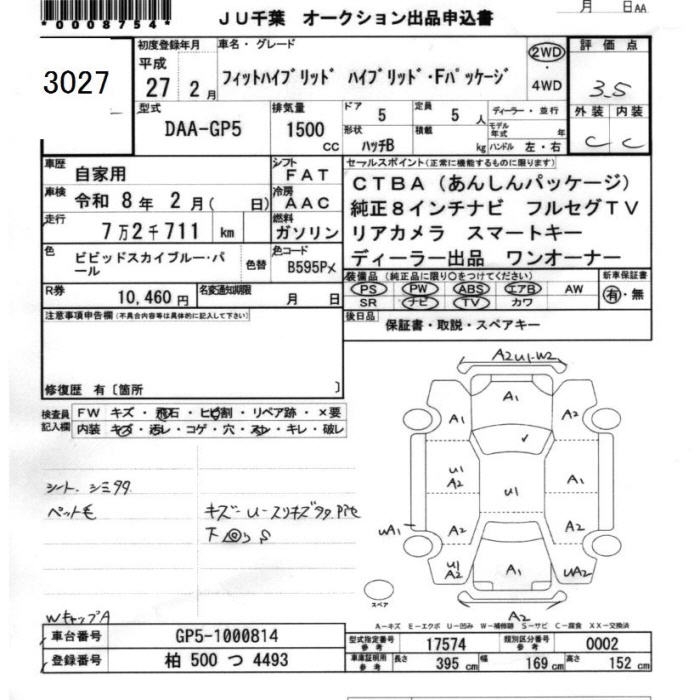 *0008754*
JU千葉 オークション出品申込書
月 日AA
3027
初度登録年月
平成
27 2月
車名・グレード
フィットハイブリッド ハイブリッド・Fパッケージ
2WD
・
4WD
評価点
3.5
型式
DAA-GP5
排気量
1500
CC
ドア
5
定員
5
人
ディーラー・並行
形状
ハッチB
積載
kg
モデル年式
年
ハンドル 左・右
外装 内装
C C
車歴
自家用
シフト
FAT
車検
令和 8年 2月( 日)
冷房
AAC
走行
7万2千711 km
燃料
ガソリン
色
ビビッドスカイブルー・パール
色替
色コード
B595Pメ
R券
10,460円
名変通知期限
月 日
セールスポイント(正常に機能するものに限ります)
CTBA(あんしんパッケージ)
純正8インチナビ フルセグTV
リアカメラ スマートキー
ディーラー出品 ワンオーナー
装備品(純正品に限り○をつけてください)
PS PW ABS エアB AW
SR ナビ TV カワ
新車保証書
有・無
後日品
保証書・取説・スペアキー
注意事項申告欄(不具合内容等は具体的に記入して下さい)
修復歴 有〔箇所 〕
検査員記入欄
FW キズ・飛石・ヒビ割・リペア跡・×要
内装 キズ・汚レ・コゲ・穴・スレ・キレ・破レ
シート、シミタタ
ペット毛
キズー U-スリキズタタ
下 S
WキャップA
A2 U1-W2
A1
A1
A2
U1
A2
U1
A2
UA1
A2
A2
U1
A2
A1
UA2
A2
スペア
A-キズ E-エクボ U-凹み W-補修跡 S-サビ C-腐食 XX-交換済
車台番号
GP5-1000814
登録番号
柏 500 つ 4493
型式指定番号
参考
17574
類別区分番号
参考
0002
車庫証明用
参考
長さ
395 cm
幅
169 cm
高さ
152 cm